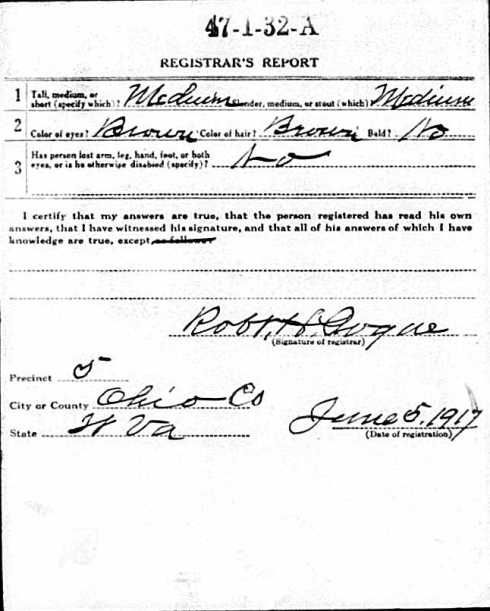 47-1-32-A
REGISTRAR'S REPORT
1 Tall, medium, or short (specify which)? Medium Slender, medium, or stout (which) Medium
2 Color of eyes? Brown Color of hair? Brown Bald? No
3 Has person lost arm, leg, hand, foot, or both eyes, or is he otherwise disabled (specify)? No
I certify that my answers are true, that the person registered has read his own
answers, that I have witnessed his signature, and that all of his answers of which I have
knowledge are true, except as follows:
Robt. H.
(Signature of registrar)
Precinct 5
City or County Ohio Co
State W Va
June 5, 1917
(Date of registration)